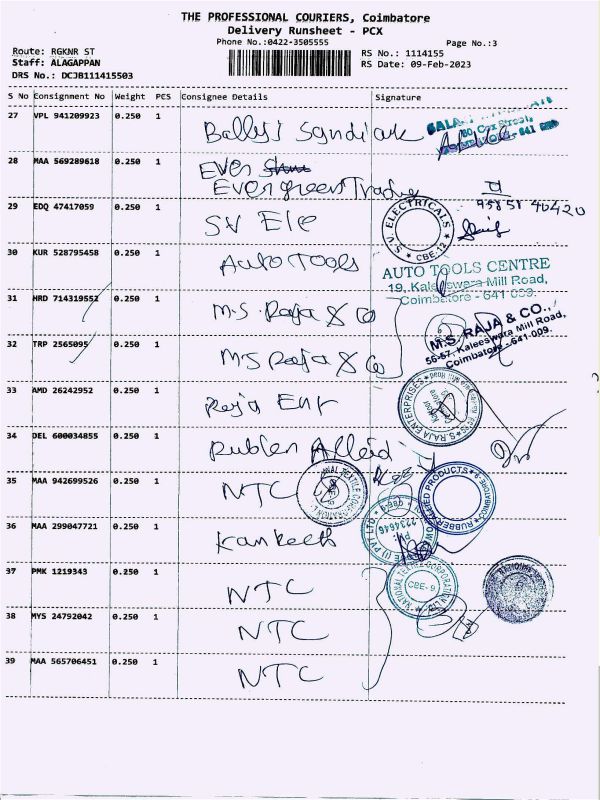 THE PROFESSIONAL COURIERS, Coimbatore
Delivery Runsheet - PCX
Phone No.:0422-3505555
Page No.:3
Route: RGKNR ST
Staff: ALAGAPPAN
DRS No.: DCJB111415503
RS No.: 1114155
RS Date: 09-Feb-2023
S No Consignment No Weight PCS Consignee Details Signature
27 VPL 941209923 0.250 1
28 MAA 569289618 0.250 1 Ever
Evergreen
95851 40420
29 EDQ 47417059 0.250 1 SV Ele
S.V. ELECTRICALS
CBE-12
30 KUR 528795458 0.250 1 Auto Tools
AUTO TOOLS CENTRE
19, Kaleeswara Mill Road,
Coimbatore - 641 009.
31 HRD 714319552 0.250 1 M.S. Raja & Co
M.S. RAJA & CO.,
56-57, Kaleeswara Mill Road,
Coimbatore - 641-009.
32 TRP 2565095 0.250 1 M.S Raja & Co
33 AMD 26242952 0.250 1 Raja Ent
S.RAJA ENTERPRISES
34 DEL 600034855 0.250 1
35 MAA 942699526 0.250 1 NTC
RUBBER ALLIED PRODUCTS
COIMBATORE
36 MAA 299047721 0.250 1
PH:
2234646
37 PMK 1219343 0.250 1 NTC
NATIONAL TEXTILE CORPORATION
CBE-9
38 MYS 24792042 0.250 1 NTC
39 MAA 565706451 0.250 1 NTC